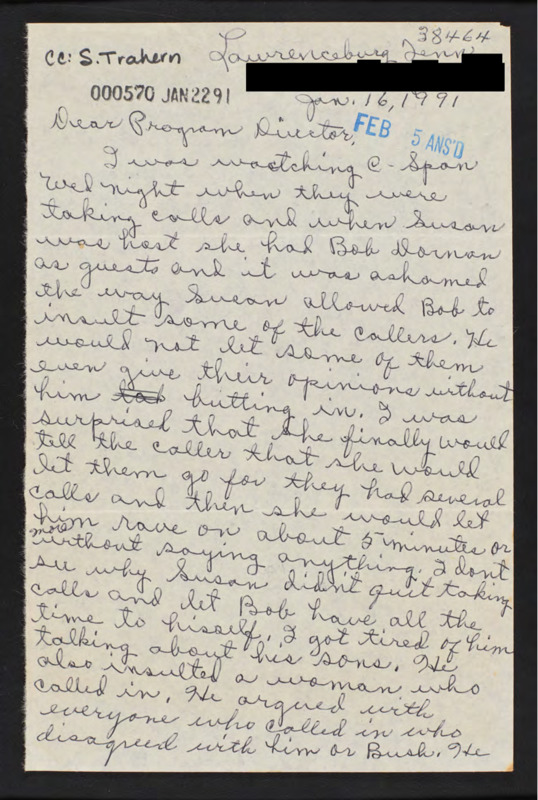 38464
cc: S. Trahern
Lawrenceburg Tenn
000570 JAN2291
Jan. 16, 1991
Dear Program Director,
FEB 5 ANS'D
I was wactching C-Span
Wed night when they were
taking calls and when Susan
was host she had Bob Dornan
as guests and it was ashamed
the way Susan allowed Bob to
insult some of the callers. He
would not let some of them
even give their opinions without
him butting in. I was
surprised that she finally would
tell the caller that she would
let them go for they had several
calls and then she would let
him rave on about 5 minutes or
more
without saying anything. I dont
see why Susan didn't quit taking
calls and let Bob have all the
time to hisself. I got tired of him
talking about his sons. He
also insulted a woman who
called in. He argued with
everyone who called in who
disagreed with him or Bush. He